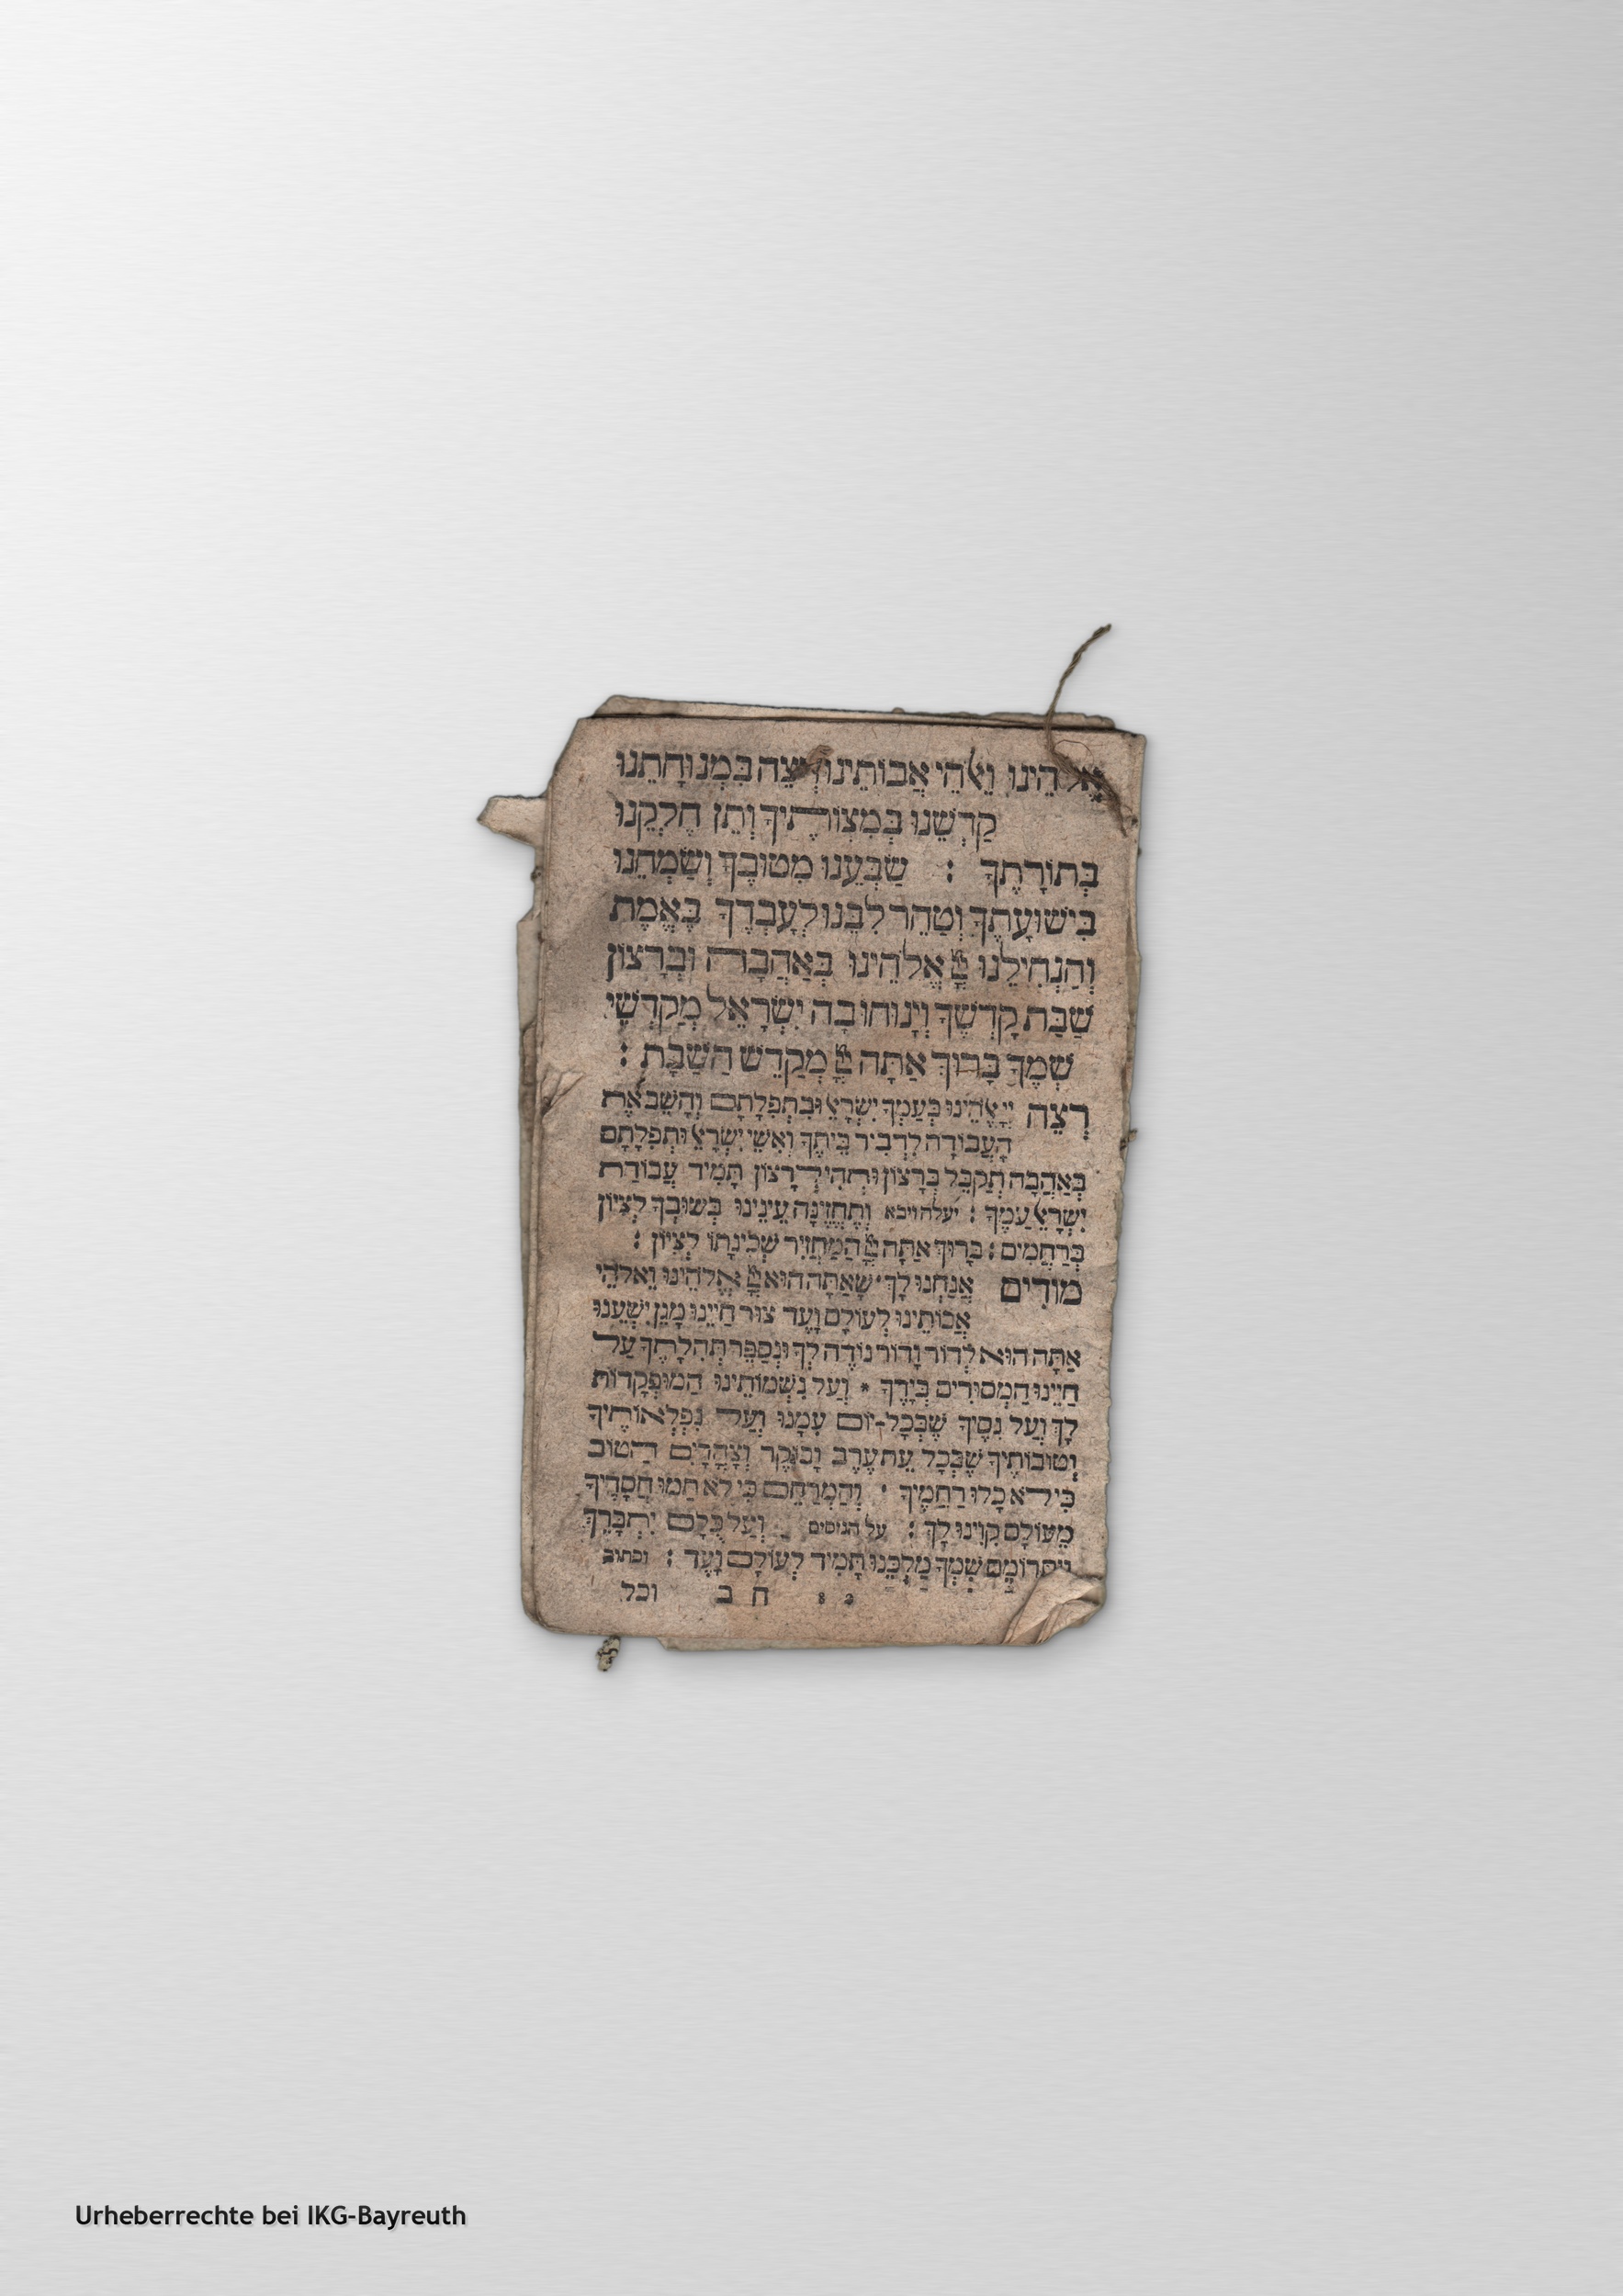 אֱלֹהֵינוּ וֵאלֹהֵי אֲבוֹתֵינוּ רְצֵה בִּמְנוּחָתֵנוּ
קַדְּשֵׁנוּ בְּמִצְוֹתֶיךָ וְתֵן חֶלְקֵנוּ
בְּתוֹרָתֶךָ : שַׂבְּעֵנוּ מִטּוּבֶךָ וְשַׂמְּחֵנוּ
בִּישׁוּעָתֶךָ וְטַהֵר לִבֵּנוּ לְעָבְדְּךָ בֶּאֱמֶת
וְהַנְחִילֵנוּ יְיָ אֱלֹהֵינוּ בְּאַהֲבָה וּבְרָצוֹן
שַׁבַּת קָדְשֶׁךָ וְיָנוּחוּ בָהּ יִשְׂרָאֵל מְקַדְּשֵׁי
שְׁמֶךָ בָּרוּךְ אַתָּה יְיָ מְקַדֵּשׁ הַשַּׁבָּת :
רְצֵה יְיָ אֱלֹהֵינוּ בְּעַמְּךָ יִשְׂרָאֵל וּבִתְפִלָּתָם וְהָשֵׁב אֶת
הָעֲבוֹדָה לִדְבִיר בֵּיתֶךָ וְאִשֵּׁי יִשְׂרָאֵל וּתְפִלָּתָם
בְּאַהֲבָה תְקַבֵּל בְּרָצוֹן וּתְהִי לְרָצוֹן תָּמִיד עֲבוֹדַת
יִשְׂרָאֵל עַמֶּךָ : יעלה ויבא וְתֶחֱזֶינָה עֵינֵינוּ בְּשׁוּבְךָ לְצִיּוֹן
בְּרַחֲמִים : בָּרוּךְ אַתָּה יְיָ הַמַּחֲזִיר שְׁכִינָתוֹ לְצִיּוֹן :
מוֹדִים אֲנַחְנוּ לָךְ · שָׁאַתָּה הוּא יְיָ אֱלֹהֵינוּ וֵאלֹהֵי
אֲבוֹתֵינוּ לְעוֹלָם וָעֶד צוּר חַיֵּינוּ מָגֵן יִשְׁעֵנוּ
אַתָּה הוּא לְדוֹר וָדוֹר נוֹדֶה לְּךָ וּנְסַפֵּר תְּהִלָּתֶךָ עַל
חַיֵּינוּ הַמְּסוּרִים בְּיָדֶךָ * וְעַל נִשְׁמוֹתֵינוּ הַמּוּפְקָדוֹת
לָךְ וְעַל נִסֶּיךָ שֶׁבְּכָל-יוֹם עִמָּנוּ וְעַל נִפְלְאוֹתֶיךָ
וְטוֹבוֹתֶיךָ שֶׁבְּכָל עֵת עֶרֶב וָבוֹקֶר וְצָהֳרָיִם הַטּוֹב
כִּי לֹא כָלוּ רַחֲמֶיךָ · וְהַמְרַחֵם כִּי לֹא תַמּוּ חֲסָדֶיךָ
מֵעוֹלָם קִוִּינוּ לָךְ : על הנסים וְעַל כֻּלָּם יִתְבָּרֵךְ
וְיִתְרוֹמֵם שִׁמְךָ מַלְכֵּנוּ תָּמִיד לְעוֹלָם וָעֶד : וכתוב
8 2 ח ב וכל
Urheberrechte bei IKG-Bayreuth